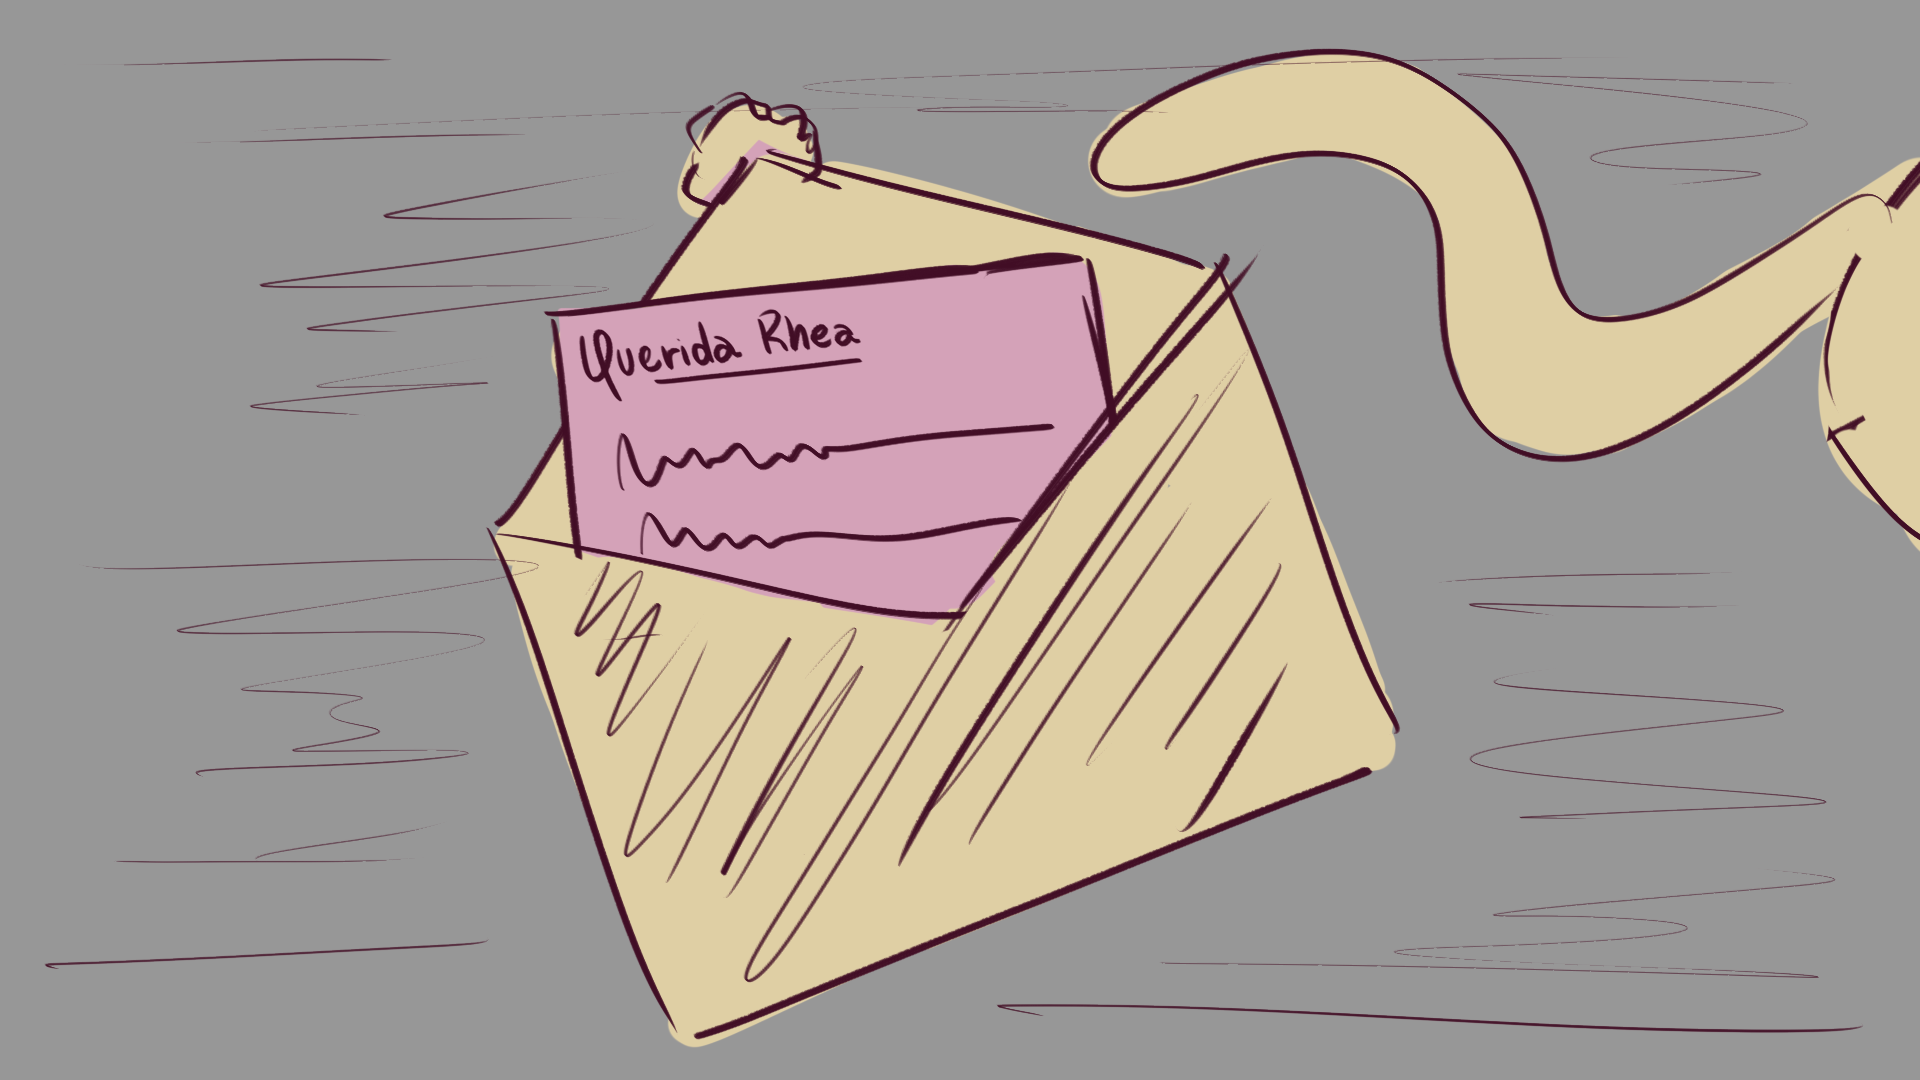 Querida Rhea